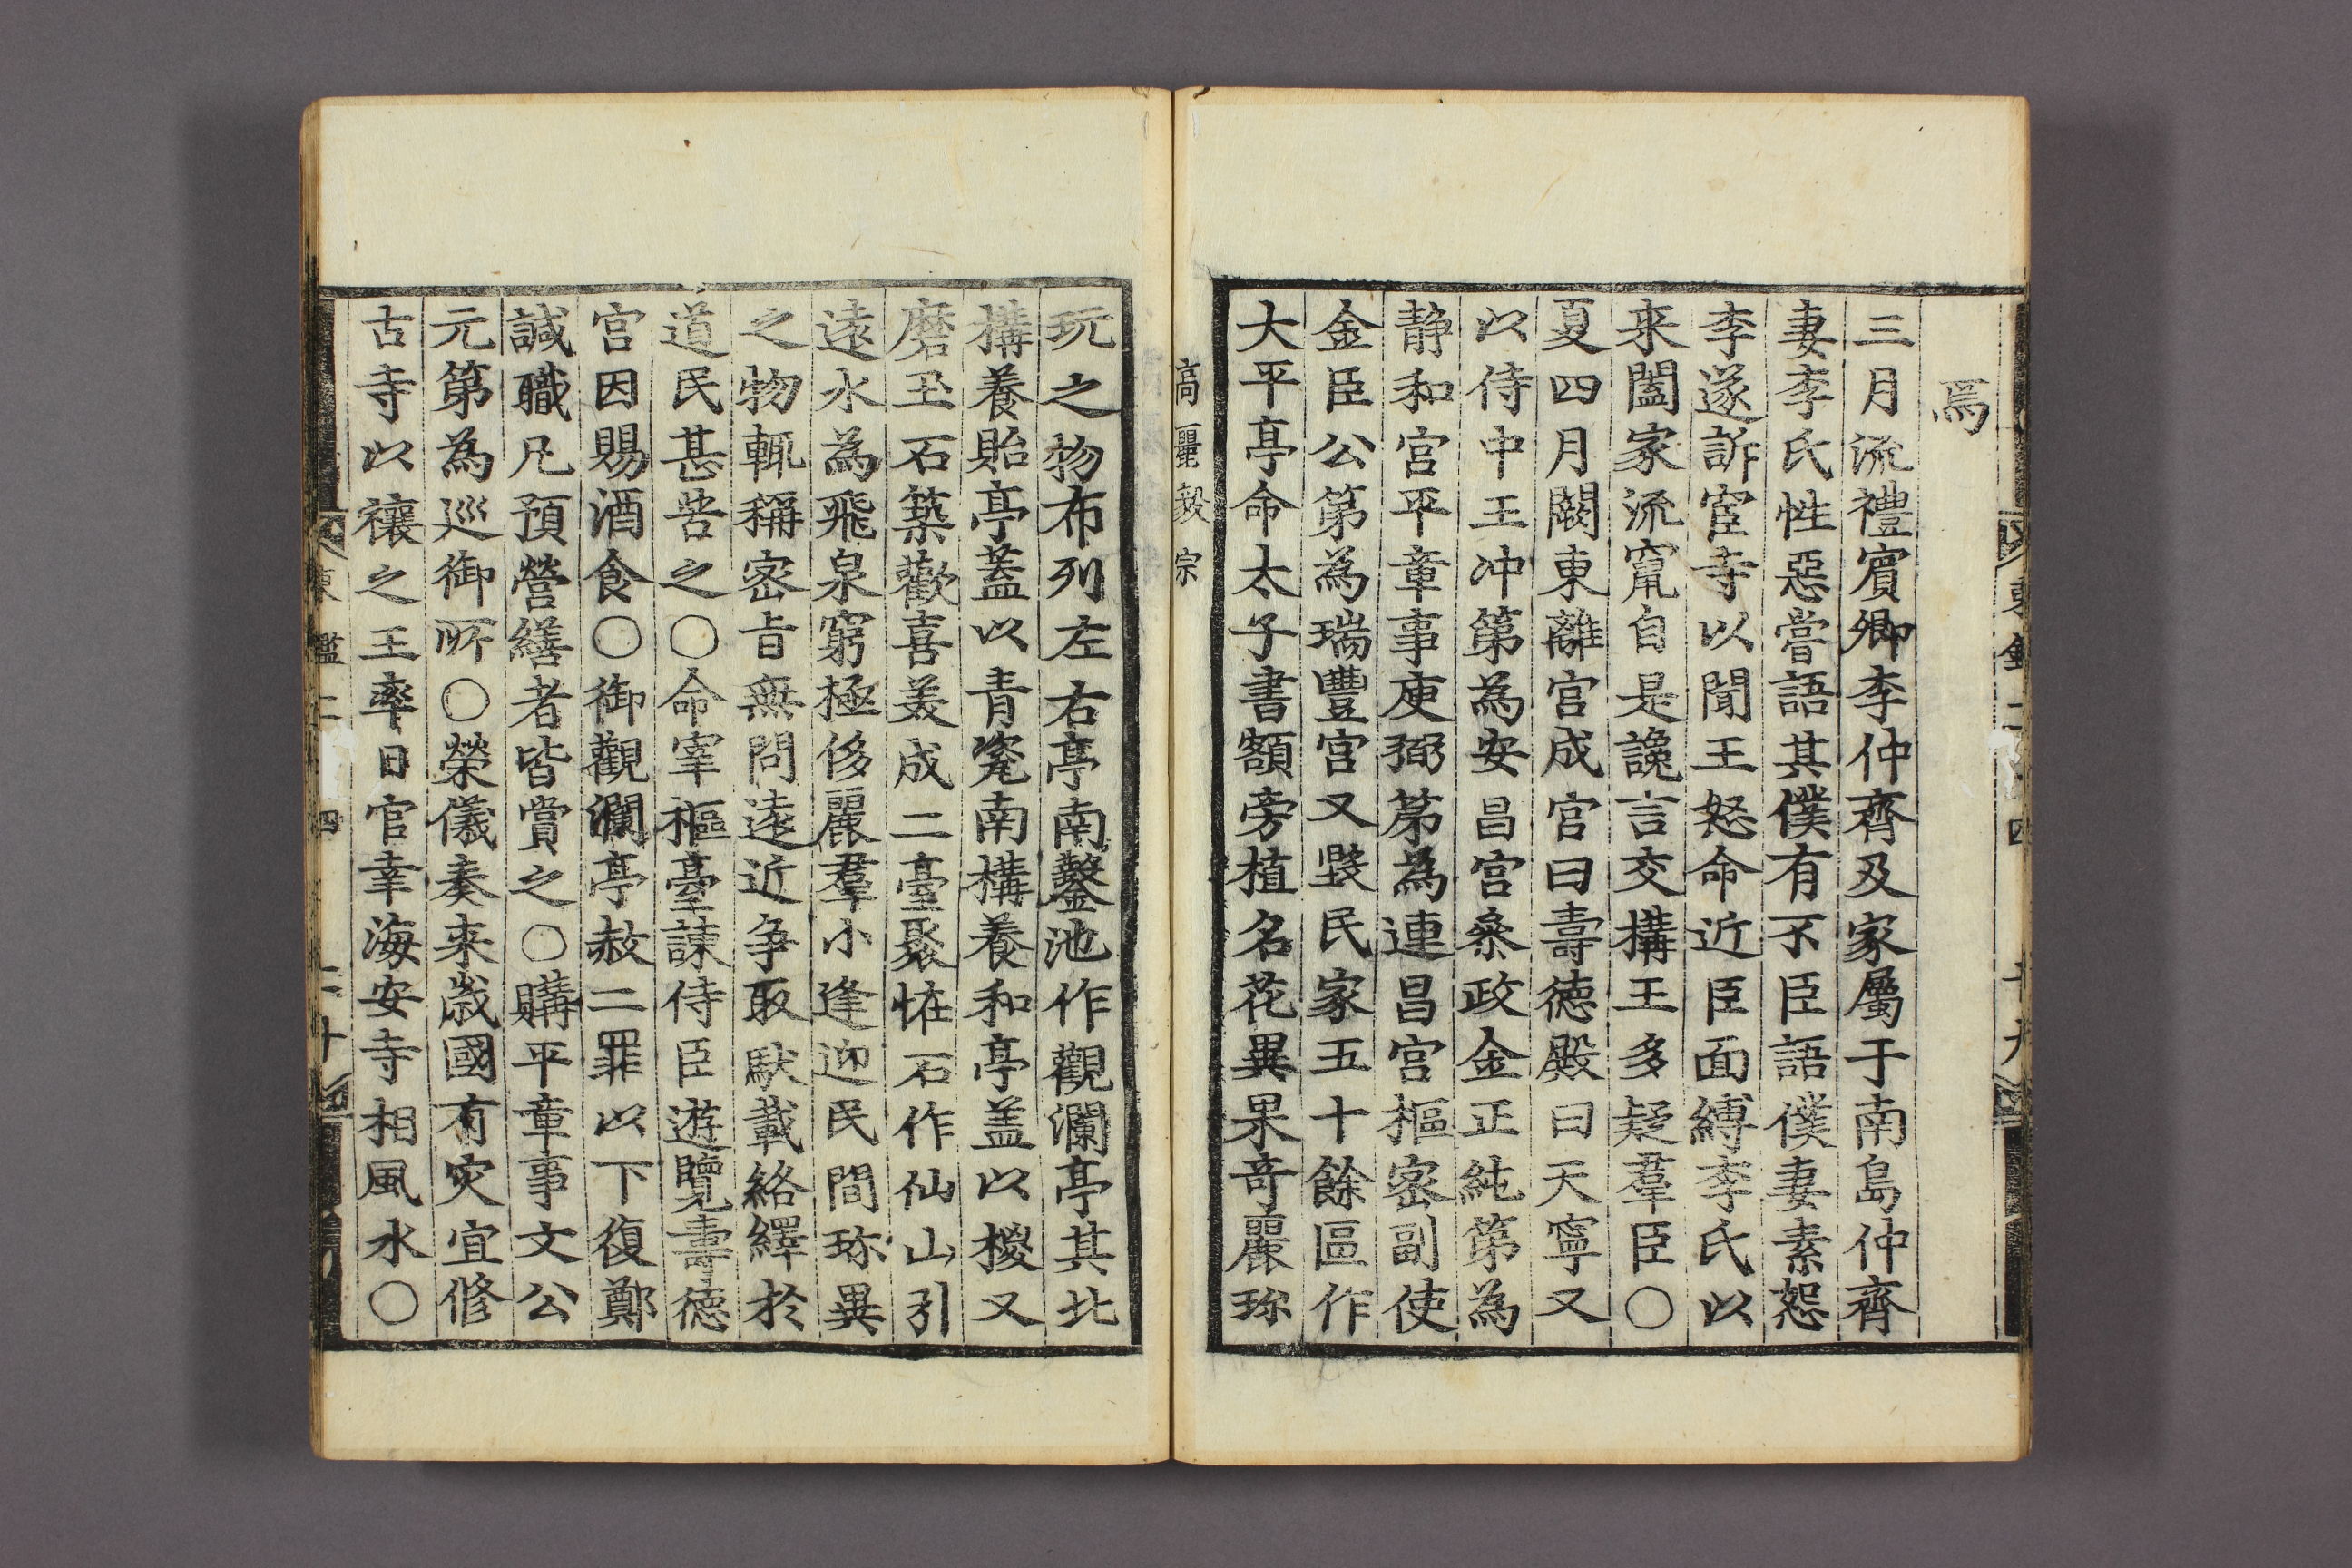 焉
三月流禮賓卿李仲齊及家屬于南島仲齊
妻李氏性惡嘗語其僕有不臣語僕妻素怨
李遂訴宦寺以聞王怒命近臣面縛李氏以
来闔家流竄自是讒言交構王多疑羣臣〇
夏四月闕東離宮成宮曰壽德殿曰天寧又
以侍中王冲第為安昌宮叅政金正純第為
静和宮平章事庾弼苐為連昌宮樞密副使
金臣公第為瑞豐宮又毀民家五十餘區作
大平亭命太子書額旁植名花異果奇麗珎
高麗毅宗
玩之物布列左右亭南鑿池作觀瀾亭其北
構養貽亭蓋以青瓷南構養和亭盖以椶又
磨玉石築歡喜美成二臺聚恠石作仙山引
遠水為飛泉窮極侈麗羣小逢迎民間珎異
之物輒稱密旨無問遠近争取馱載絡繹於
道民甚苦之〇命宰樞臺諫侍臣遊覽壽德
宮因賜酒食〇御觀瀾亭赦二罪以下復鄭
諴職凡預營繕者皆賞之〇購平章事文公
元第為巡御所〇榮儀奏来歳國有灾宜修
古寺以禳之王率日官幸海安寺相風水〇
東鑑二 四 二十